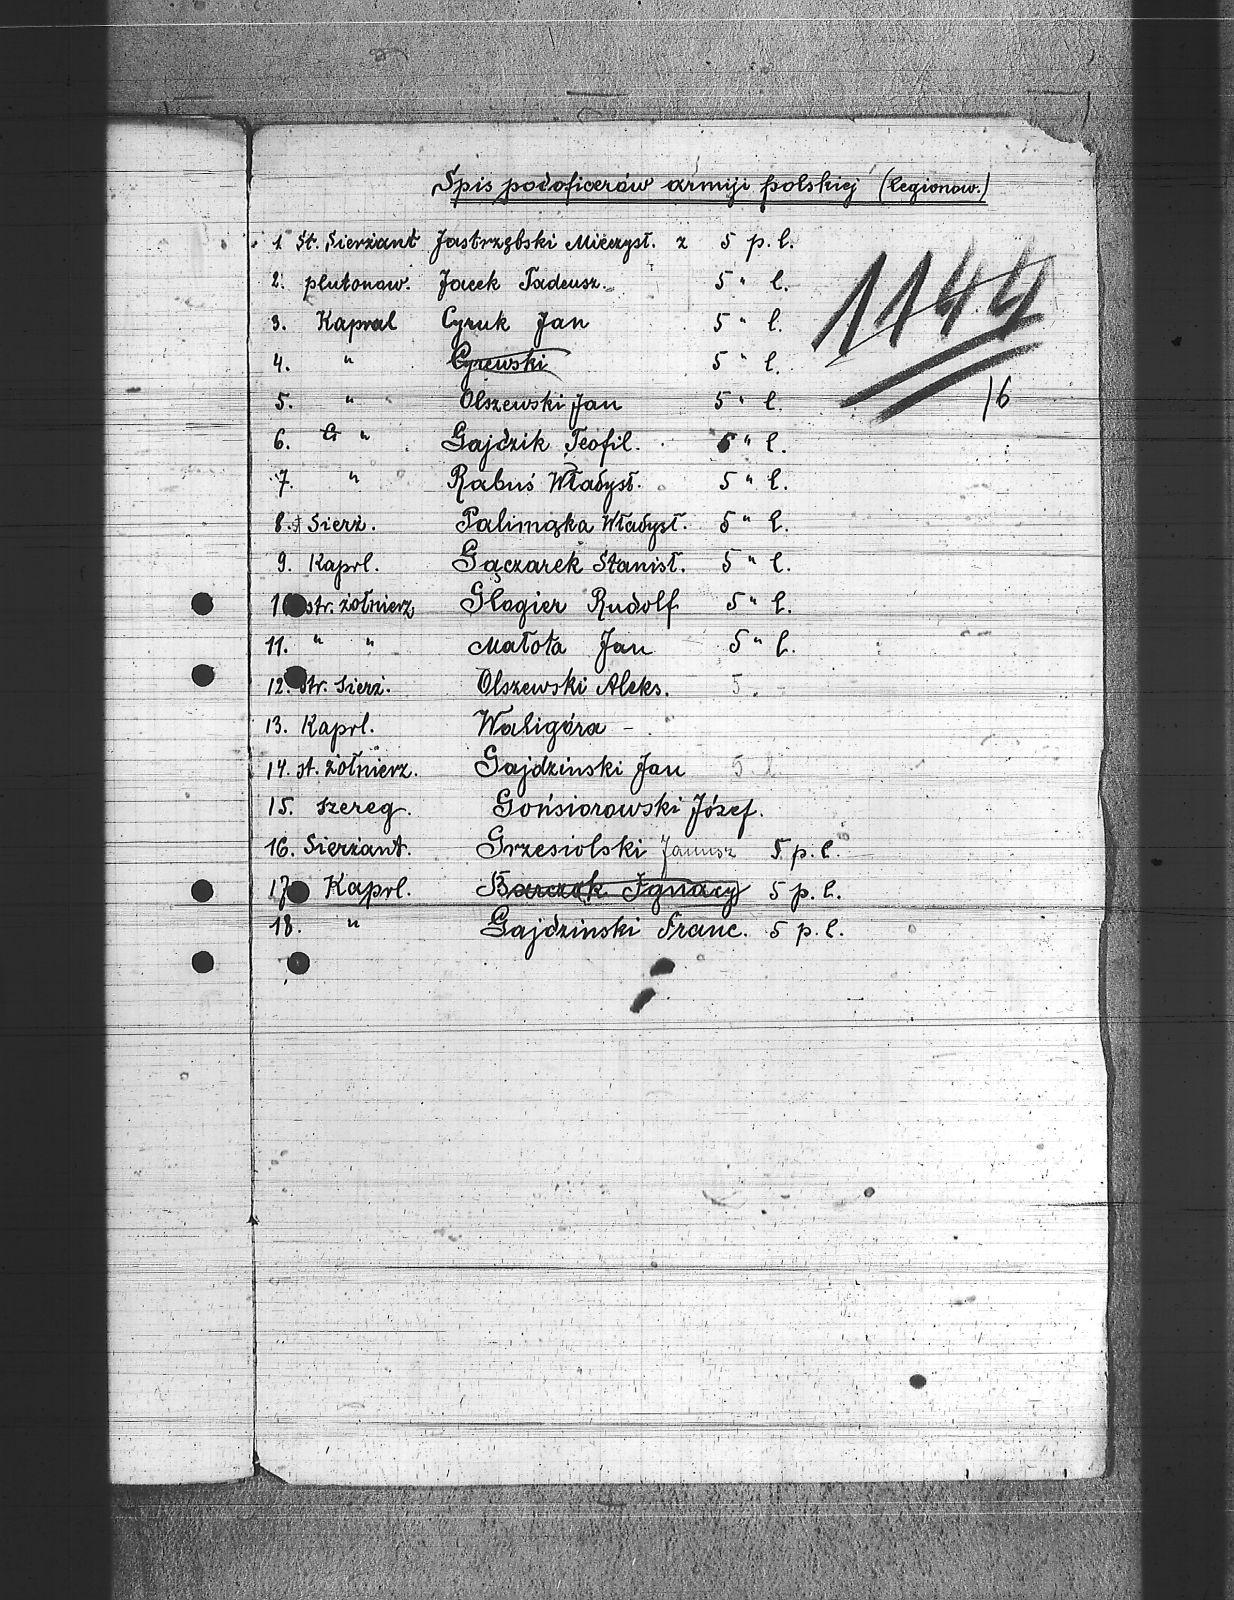 Spis podoficerów armiji polskiej (legionow.)
1 St. Sierżant Jastrzębski Mieczysł. z 5 p. l.
2. plutonow. Jacek Tadeusz. 5 " l.
3. Kapral Cyruk Jan 5 " l.
4. " Cyrewski 5 " l.
5. " Olszewski Jan 5 " l.
6. " Gajdzik Teofil. 5 " l.
7. " Rabuś Władysł. 5 " l.
8. Sierż. Palimąka Władysł. 5 " l.
9. Kaprl. Gączarek Stanisł. 5 " l.
10 str. żołnierz Glagier Rudolf 5 " l.
11. " " Małota Jan 5 " l.
12. str. Sierż. Olszewski Aleks. 5. -
13. Kaprl. Waligóra -
14. st. żołnierz. Gajdzinski Jan 5. l
15. szereg. Gońsiorowski Józef.
16. Sierżant. Grzesiolski Janusz 5 p. l.
17 Kaprl. Barczak Ignacy 5 p. l.
18. " Gajdzinski Franc. 5 p. l.
1144
16